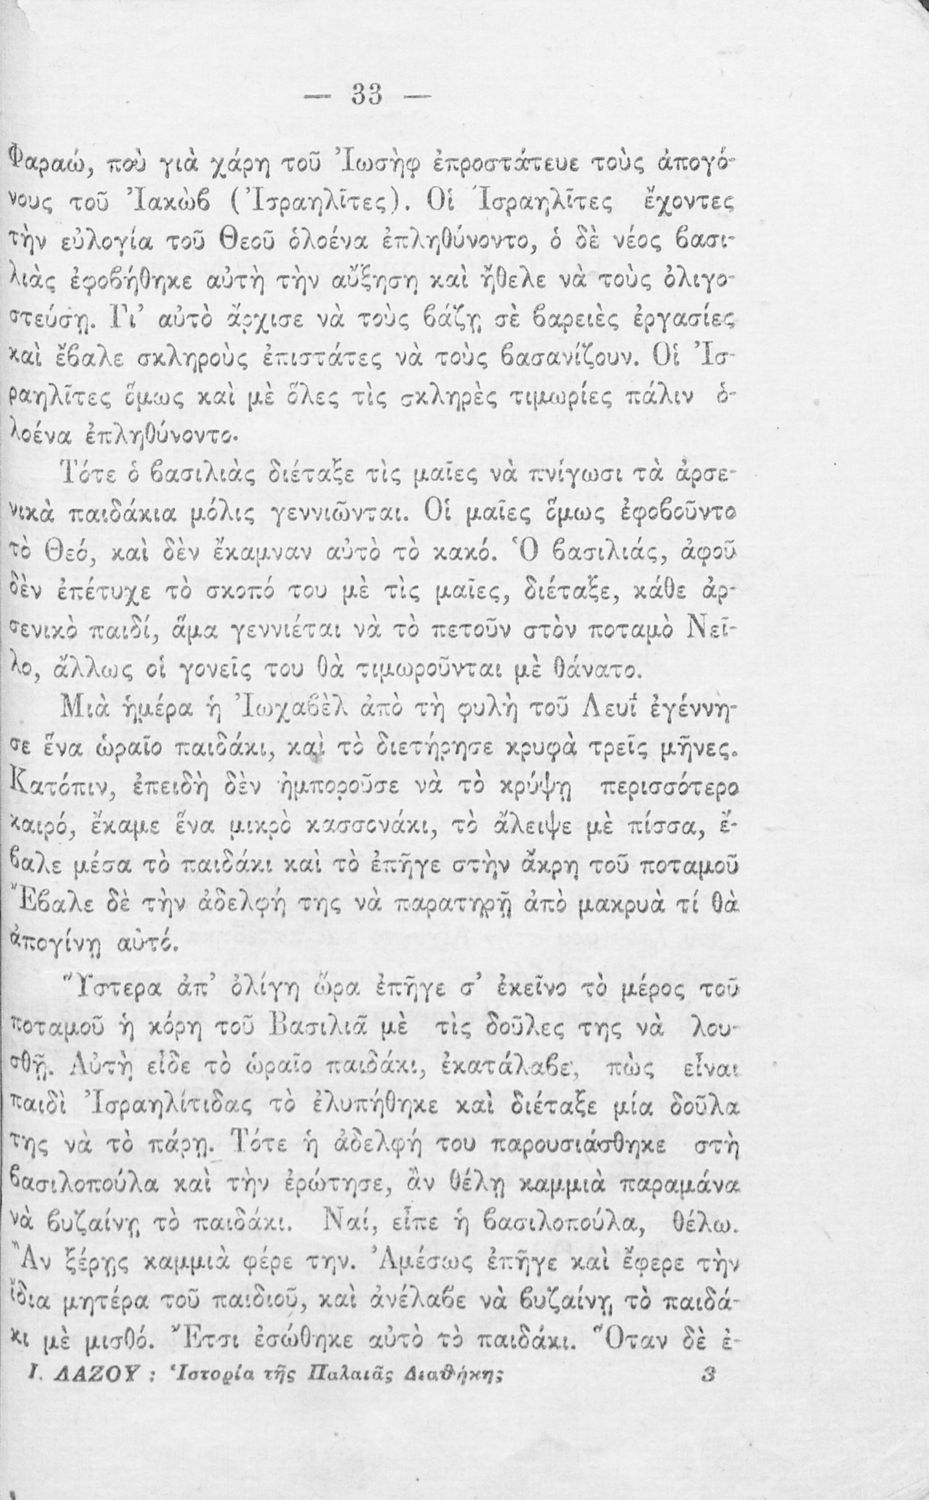 — 33 —
Φαραώ, ποὺ γιὰ χάρη τοῦ Ἰωσὴφ ἐπροστάτευε τοὺς ἀπογό-
νους τοῦ Ἰακὼβ (Ἰσραηλῖτες). Οἱ Ἰσραηλῖτες ἔχοντες
τὴν εὐλογία τοῦ Θεοῦ ὁλοένα ἐπληθύνοντο, ὁ δὲ νέος βασι-
λιὰς ἐφοβήθηκε αὐτὴ τὴν αὔξηση καὶ ἤθελε νὰ τοὺς ὀλιγο-
στεύσῃ. Γι’ αὐτὸ ἄρχισε νὰ τοὺς βάζῃ σὲ βαρειὲς ἐργασίες
καὶ ἔβαλε σκληροὺς ἐπιστάτες νὰ τοὺς βασανίζουν. Οἱ Ἰσ-
ραηλῖτες ὅμως καὶ μὲ ὅλες τὶς σκληρὲς τιμωρίες πάλιν ὁ-
λοένα ἐπληθύνοντο.
Τότε ὁ βασιλιὰς διέταξε τὶς μαῖες νὰ πνίγωσι τὰ ἀρσε-
νικὰ παιδάκια μόλις γεννιῶνται. Οἱ μαῖες ὅμως ἐφοβοῦντο
τὸ Θεό, καὶ δὲν ἔκαμναν αὐτὸ τὸ κακό. Ὁ βασιλιάς, ἀφοῦ
δὲν ἐπέτυχε τὸ σκοπό του μὲ τὶς μαῖες, διέταξε, κάθε ἀρ-
σενικὸ παιδί, ἅμα γεννιέται νὰ τὸ πετοῦν στὸν ποταμὸ Νεῖ-
λο, ἄλλως οἱ γονεῖς του θὰ τιμωροῦνται μὲ θάνατο.
Μιὰ ἡμέρα ἡ Ἰωχαβὲλ ἀπὸ τὴ φυλὴ τοῦ Λευΐ ἐγέννη-
σε ἕνα ὡραῖο παιδάκι, καὶ τὸ διετήρησε κρυφὰ τρεῖς μῆνες.
Κατόπιν, ἐπειδὴ δὲν ἠμποροῦσε νὰ τὸ κρύψῃ περισσότερο
καιρό, ἔκαμε ἕνα μικρὸ κασσονάκι, τὸ ἄλειψε μὲ πίσσα, ἔ-
βαλε μέσα τὸ παιδάκι καὶ τὸ ἐπῆγε στὴν ἄκρη τοῦ ποταμοῦ
Ἔβαλε δὲ τὴν ἀδελφή της νὰ παρατηρῇ ἀπὸ μακρυὰ τί θὰ
ἀπογίνῃ αὐτό.
Ὕστερα ἀπ’ ὀλίγη ὥρα ἐπῆγε σ’ ἐκεῖνο τὸ μέρος τοῦ
ποταμοῦ ἡ κόρη τοῦ Βασιλιᾶ μὲ τὶς δοῦλες της νὰ λου-
σθῇ. Αὐτὴ εἶδε τὸ ὡραῖο παιδάκι, ἐκατάλαβε, πὼς εἶναι
παιδὶ Ἰσραηλίτιδας τὸ ἐλυπήθηκε καὶ διέταξε μία δοῦλα
της νὰ τὸ πάρῃ. Τότε ἡ ἀδελφή του παρουσιάσθηκε στὴ
βασιλοπούλα καὶ τὴν ἐρώτησε, ἂν θέλῃ καμμιὰ παραμάνα
νὰ βυζαίνῃ τὸ παιδάκι. Ναί, εἶπε ἡ βασιλοπούλα, θέλω.
Ἂν ξέρῃς καμμιὰ φέρε την. Ἀμέσως ἐπῆγε καὶ ἔφερε τὴν
ἴδια μητέρα τοῦ παιδιοῦ, καὶ ἀνέλαβε νὰ βυζαίνῃ τὸ παιδά-
κι μὲ μισθό. Ἔτσι ἐσώθηκε αὐτὸ τὸ παιδάκι. Ὅταν δὲ ἐ-
Ι. ΛΑΖΟΥ : Ἱστορία τῆς Παλαιᾶς Διαθήκης 3